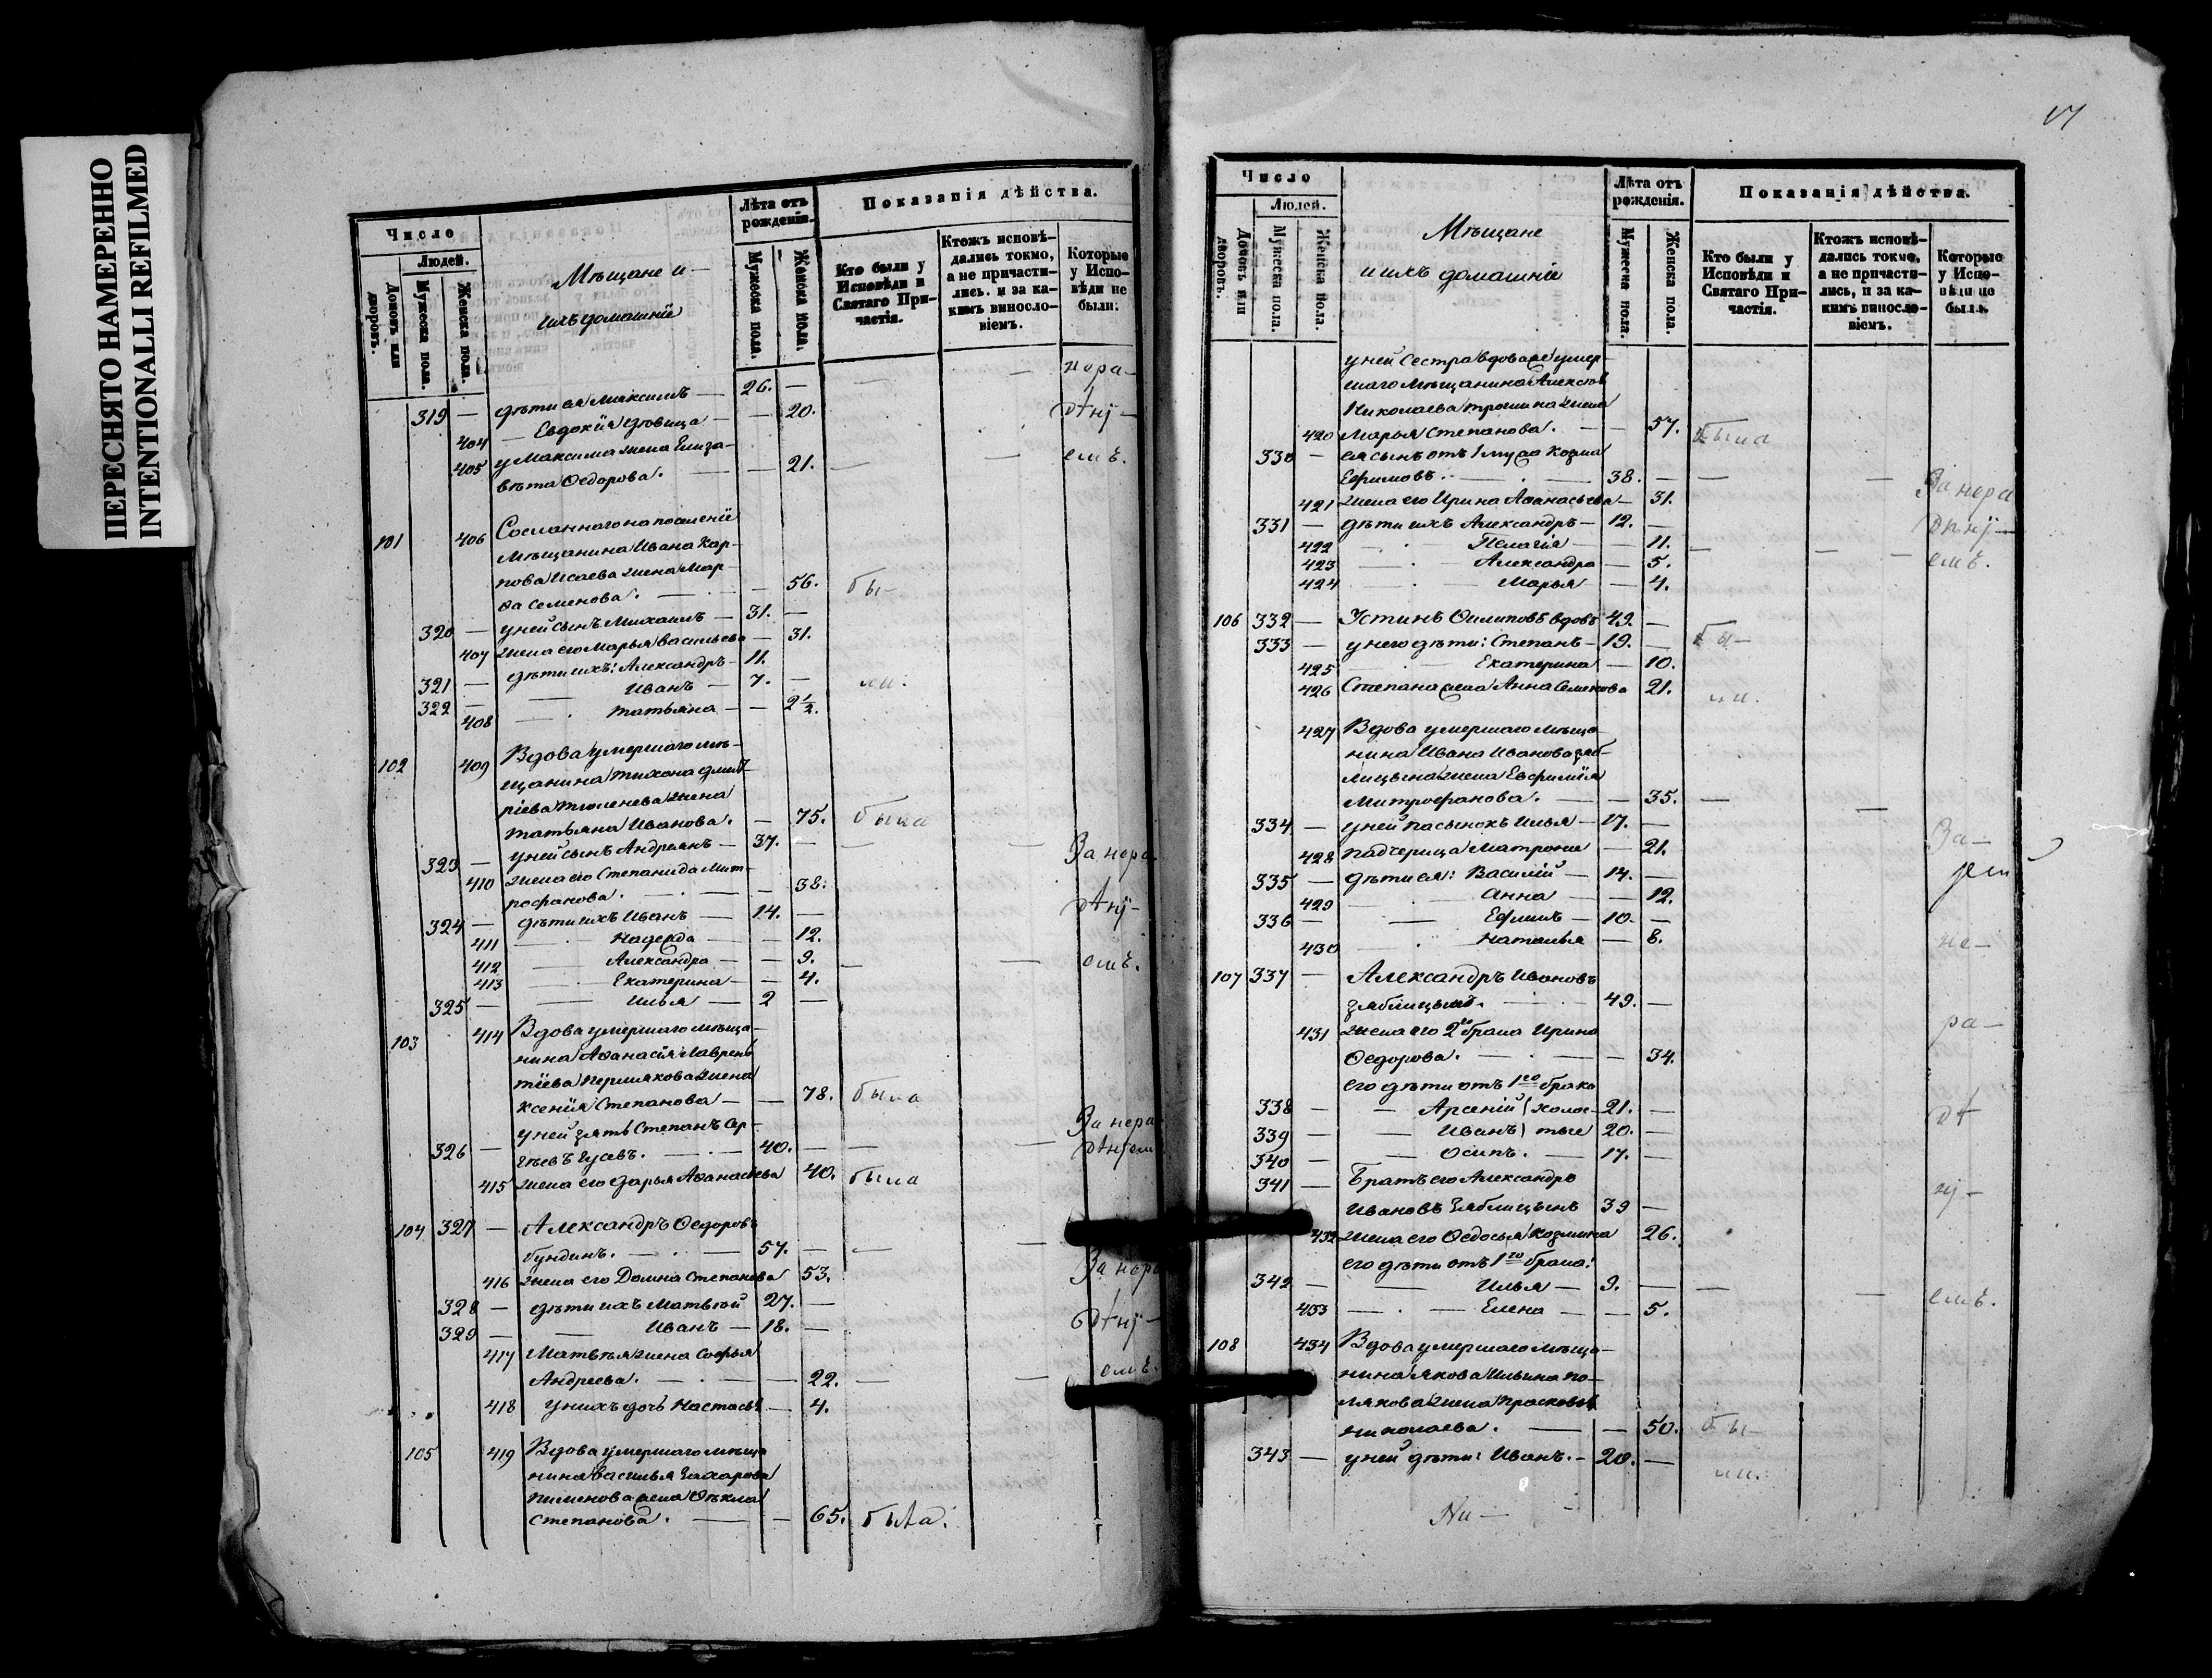 ПЕРЕСНЯТО НАМЕРЕННО
INTENTIONALLI REFILMED
Число
Людей.
Домовъ или дворовъ.
Мужеска пола.
Женска пола.
Мѣщане и
ихъ домашніе
Лѣта отъ рожденія.
Мужеска пола.
Женска пола.
Показанія дѣйства.
Кто были у Исповѣди и Святаго Причастія.
Ктожъ исповѣдались токмо, а не причастились. и за какимъ винословіемъ.
Которые у Исповѣди не были.
319 — дѣти ея Максимъ — 26. — нера-
404 — Евдокія дѣвица — — 20. дѣнi-
405 у Максима жена Елиза-
вѣта Ѳедорова. — — 21. — — емъ.
101 406 Сосланнаго на поселеніе
Мѣщанина Ивана Кар-
пова Исаева жена Мар-
ѳа Семенова. — 56. бы-
320 — у ней сынъ Михаилъ — 31. —
407 жена его Марья Васильева — 31.
321 — дѣти ихъ: Александръ — 11.
322 — Иванъ — 7. — ли.
408 — Татьяна — — 2½.
102 409 Вдова умершаго мѣ-
щанина Тихона Дмит-
ріева Тюленева жена
Татьяна Иванова. — 75. была
323 — у ней сынъ Андреянъ — 37. — — — За нера-
410 жена его Степанида Мит-
рофанова. — — 38.
324 — дѣти ихъ Иванъ — 14. — дѣнi-
411 — Надежда — — 12.
412 — Александра — — 9. — — емъ.
413 — Екатерина — — 4.
325 — Илья — 2 —
103 414 Вдова умершаго мѣща-
нина Аѳанасія Лаврен-
тіева Пермякова жена
Ксенія Степанова — — 78. была
у ней зять Степанъ Сер- За нера-
326 — гѣевъ Гусевъ. — 40. — — — дѣнiем
415 жена его Дарья Аѳанасьева 40. была
104 327 — Александръ Ѳедоровъ
Бундинъ. — 57. — — —
416 жена его Домна Степанова 53. За нера
328 — дѣти ихъ Матвѣй 27. —
329 — Иванъ — 18. — дѣнi-
417 Матвѣя жена Софья
Андреева. — — 22. — — емъ.
418 у нихъ дочь Настасья — 4.
105 419 Вдова умершаго мѣща
нина Василья Захарова
Пименова жена Ѳекла
Степанова. — — 65. была.
Число
Людей.
Домовъ или дворовъ.
Мужеска пола.
Женска пола.
Мѣщане
и ихъ домашніе
Лѣта отъ рожденія.
Мужеска пола.
Женска пола.
Показанія дѣйства.
Кто были у Исповѣди и Святаго Причастія.
Ктожъ исповѣдались токмо, а не причастились, и за какимъ винословіемъ.
Которые у Исповѣди не были.
у ней сестра вдовая умер-
шаго мѣщанина Алексѣя
Николаева жена
420 Марья Степанова. — — 57. была
330 — ея сынъ отъ 1 мужа Козма
Ефимовъ. — 38. — — — За нера
421 жена его Ирина Аѳанасьева — 31.
331 — дѣти ихъ Александръ — 12. — дѣнi-
422 — Пелагія — — 11.
423 — Александра — 5. — — — емъ.
424 — Марья — 4.
106 332 — Устинъ Филиповъ вдовъ 42. —
333 — у него дѣти: Степанъ — 19. — бы-
425 — Екатерина — 10.
426 Степана жена Анна Семенова 21. ли.
427 Вдова умершаго мѣща
нина Ивана Иванова Зяб-
лицына жена Евфимія
Митрофанова. — — 35. — —
334 — у ней пасынокъ Илья — 17. — За-
428 падчерица Матрона — 21.
335 — дѣти ея: Василій — 14. —
429 Анна — 12.
336 — Ефимъ — 10. —
430 Наталья — 8. не-
107 337 — Александръ Ивановъ
Зяблицынъ. — 49. —
431 жена его 2го брака Ирина ра-
Ѳедорова. — — 34.
его дѣти отъ 1го брака
338 — Арсеній холос- 21. — дѣ
339 — Иванъ тые 20. —
340 — Осипъ. — 17. —
341 — Братъ его Александръ нi-
Ивановъ Зяблицынъ 39 —
432 жена его Ѳедосья Козмина 26.
его дѣти отъ 1го брака:
342 — Илья — 9. — — — емъ.
433 — Елена — — 5.
108 434 Вдова умершаго мѣща-
нина Якова Ильина По-
лякова жена Прасковья
Николаева. — — 50. бы-
343 — у ней дѣти: Иванъ. — 20. — ли.
Ни-